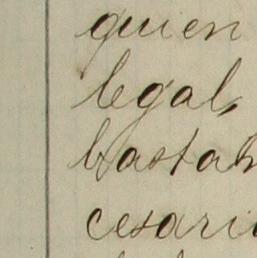 quien
legal,
bastan
cesari